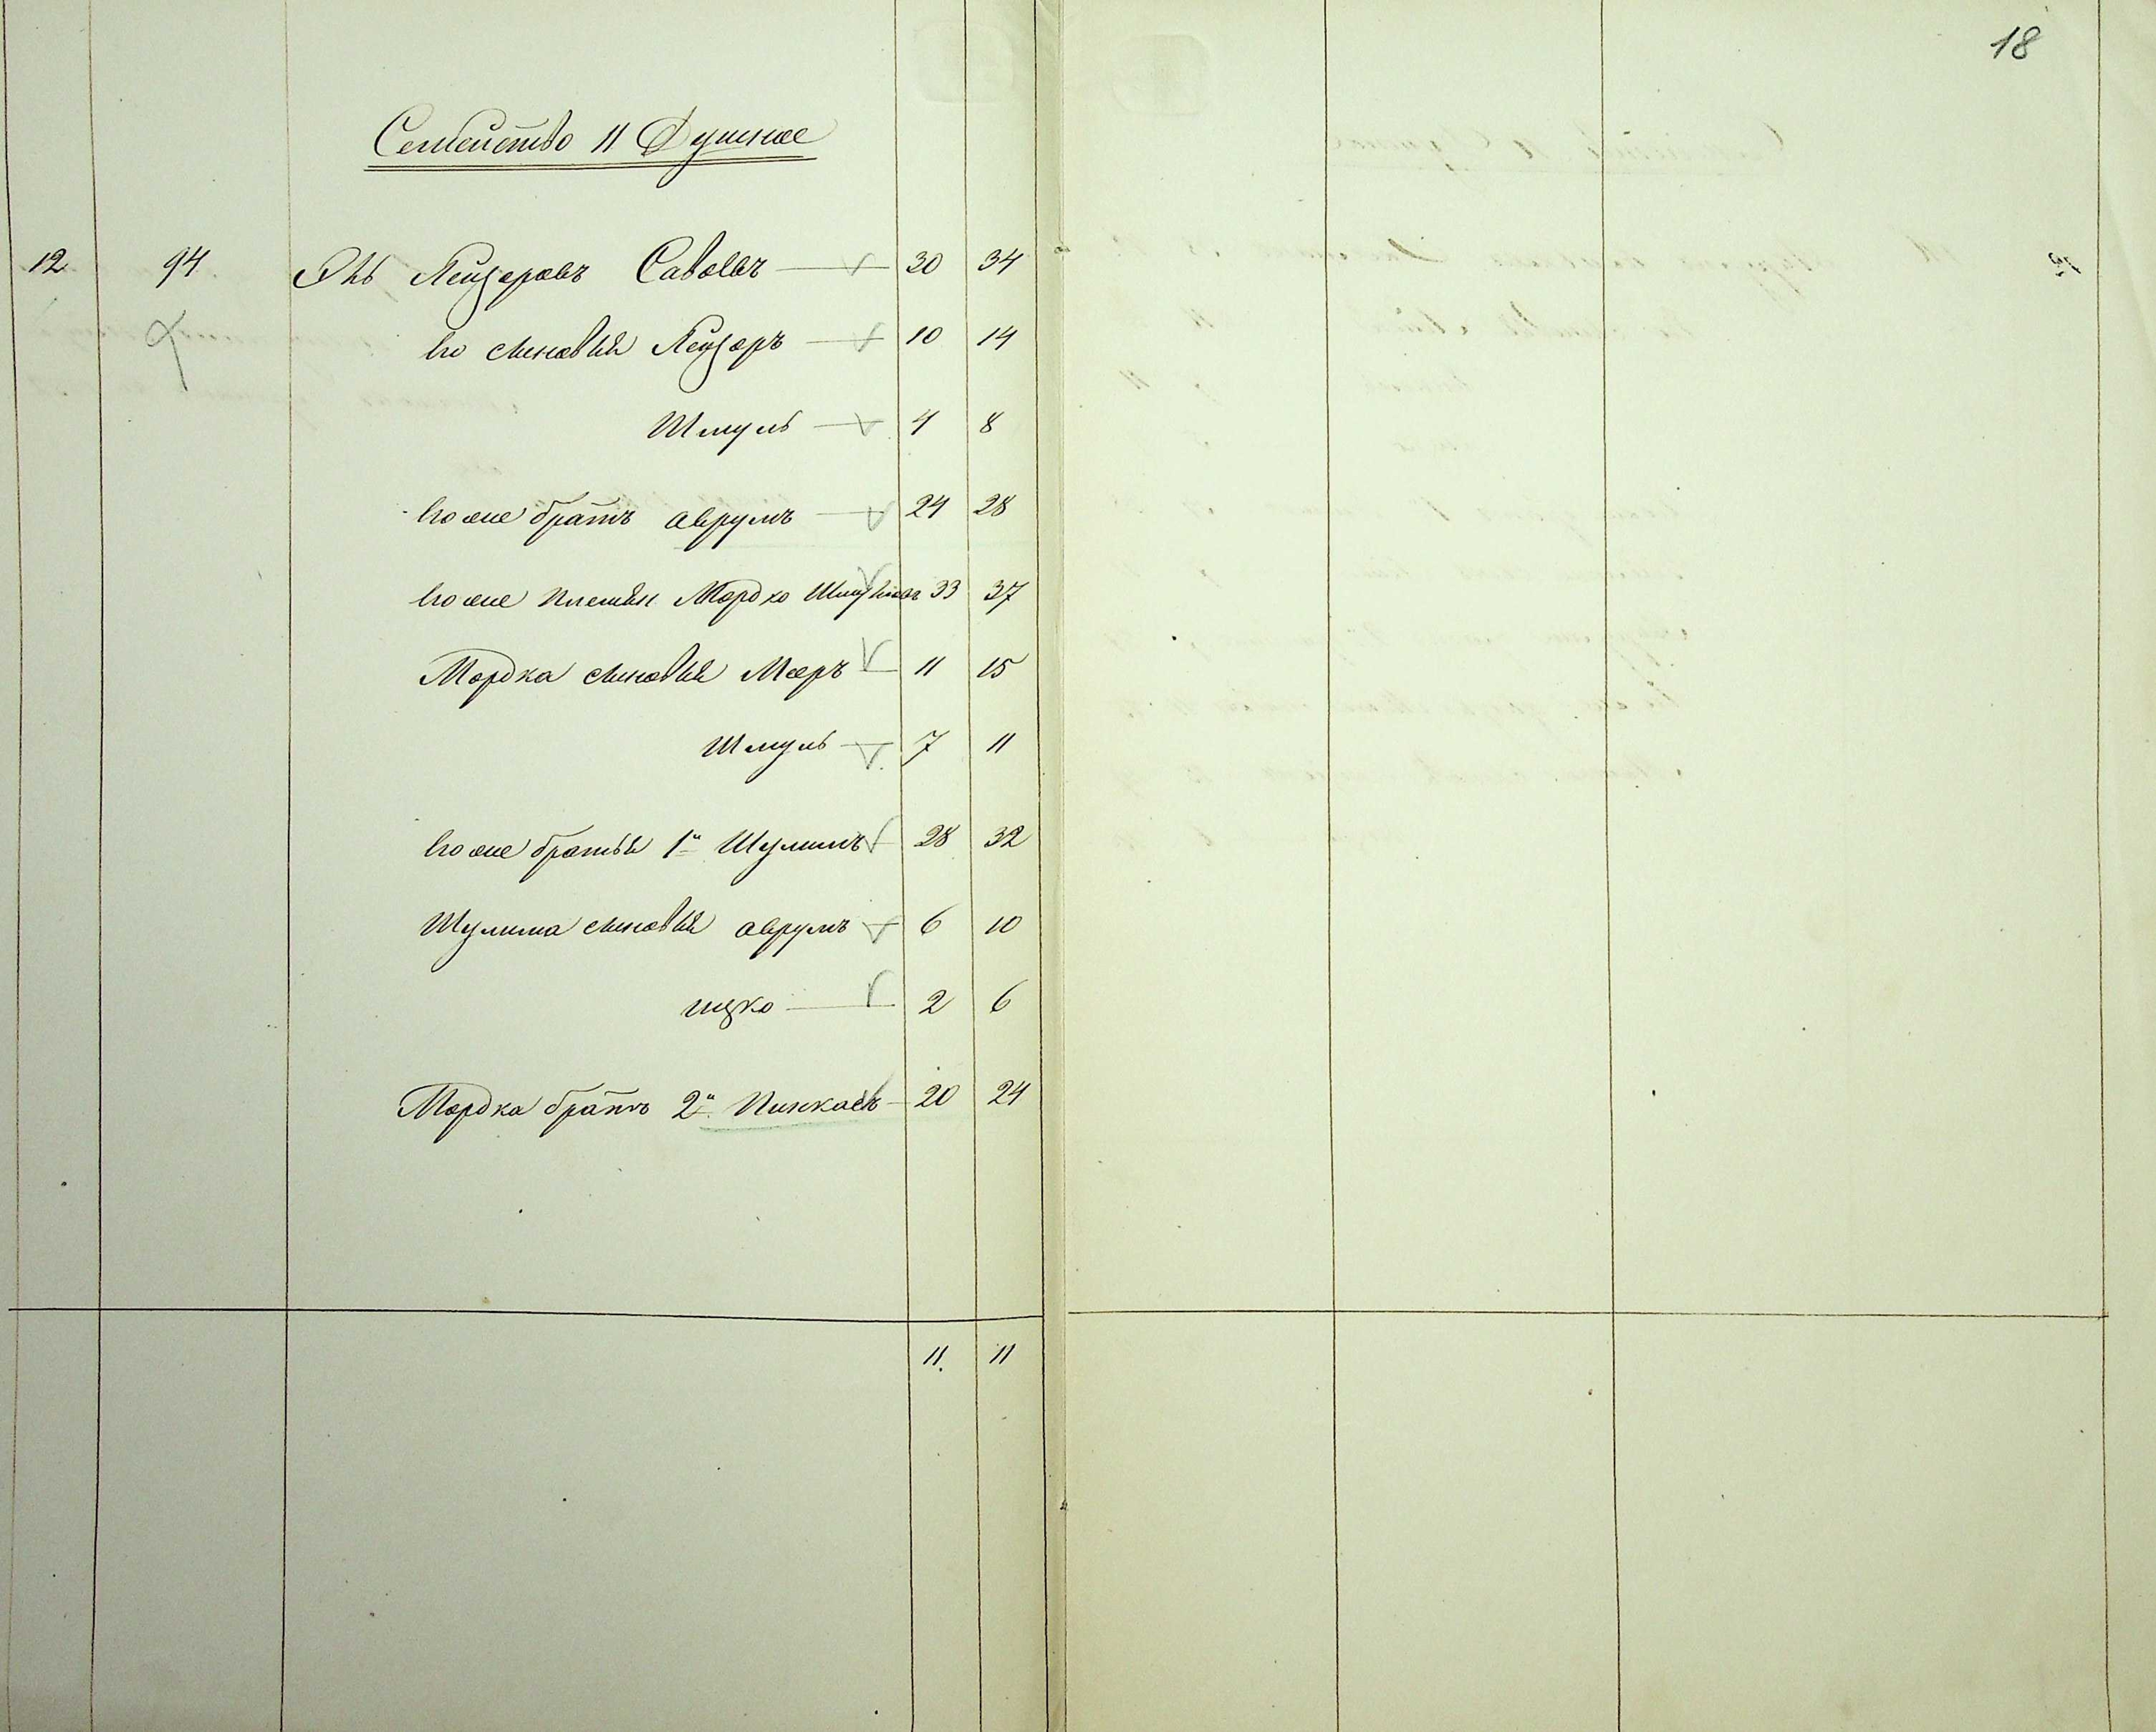 18
Семейство 11 Душное
12 94 Лейзеровъ 30 34
Его сыновья Лейзоръ 10 14
Шмуль 4 8
Его же братъ Аврумъ 24 28
Его же племян Мордко 33 37
Мордка сыновья Мееръ 11 15
Шмуль 7 11
Его же братья 1й Шулимъ 28 32
Шулима сыновья Аврумъ 6 10
Ицко 2 6
Мордка братъ 2й Пинкасъ 20 24
11. 11